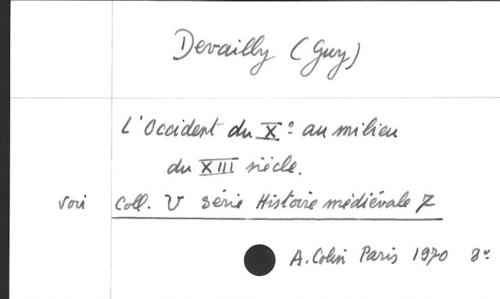 Devailly (Guy)
L'Occident du X° au milieu
du XIII siècle.
voir Coll. U série Histoire médiévale 7
A. Colin Paris 1970 8°